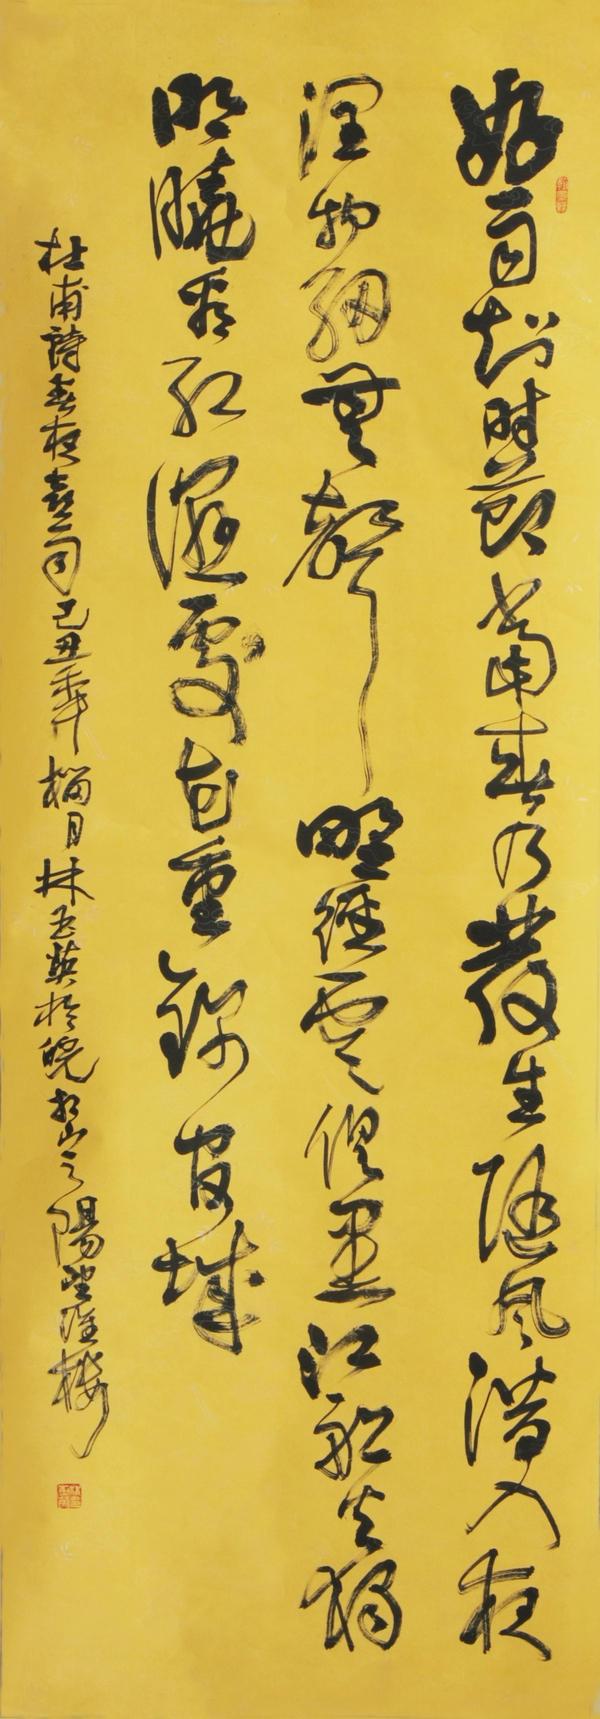 好雨知時節當春乃發生隨風潛入夜
潤物細無聲野徑雲俱黑江船火獨
明曉看紅濕處花重錦官城
杜甫詩春夜喜雨己丑年榴月林玉英於皖相山之陽望淮樓